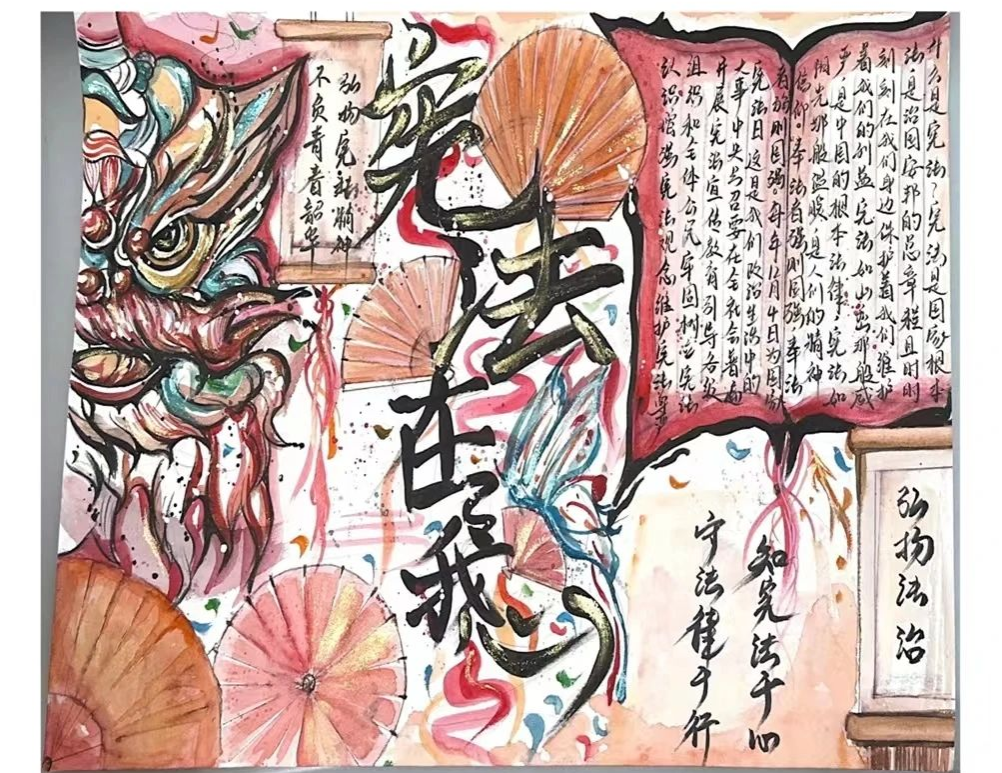 什么是宪法？宪法是国家根本
法是治国安邦的总章程且时时
刻刻在我们身边保护着我们维护
着我们的利益宪法如山那般威
严是中国的根本法律宪法如
阳光那般温暖是人们的精神
信仰。奉法者强则国强奉法
者弱则国弱每年12月4日为国家
宪法日这是我们政治生活中的
大事中央号召要在全社会普遍
开展宪法宣传教育引导各级
组织和全体公民牢固树立宪法
认识增强宪法观念维护宪法
宪法在我心
弘扬宪法精神
不负青春韶华
弘扬法治
知宪法于心
守法律于行